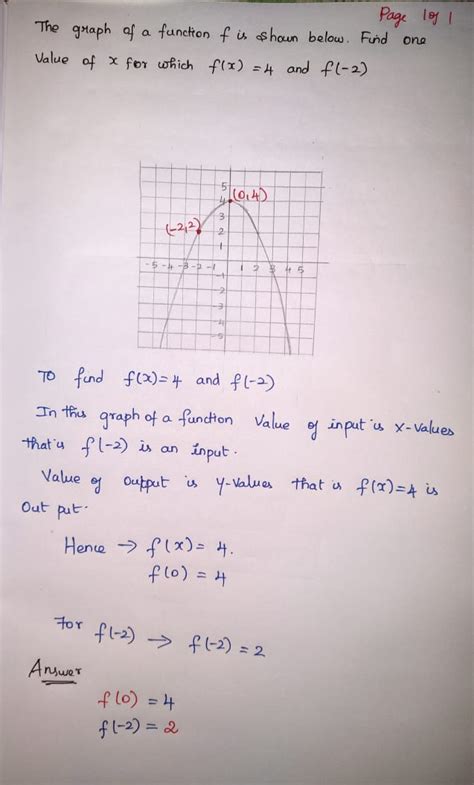 Page 1 of 1
The graph of a function f is shown below. Find one
Value of x for which f(x) = 4 and f(-2)
5
4 (0,4)
3
(-2,2) 2
1
-5 -4 -3 -2 -1 1 2 3 4 5
-1
-2
-3
-4
-5
To find f(x)=4 and f(-2)
In this graph of a function Value of input is x-values
that is f(-2) is an input.
Value of output is y-values that is f(x)=4 is
Out put.
Hence → f(x) = 4.
f(0) = 4
For f(-2) → f(-2) = 2
Answer
f(0) = 4
f(-2) = 2